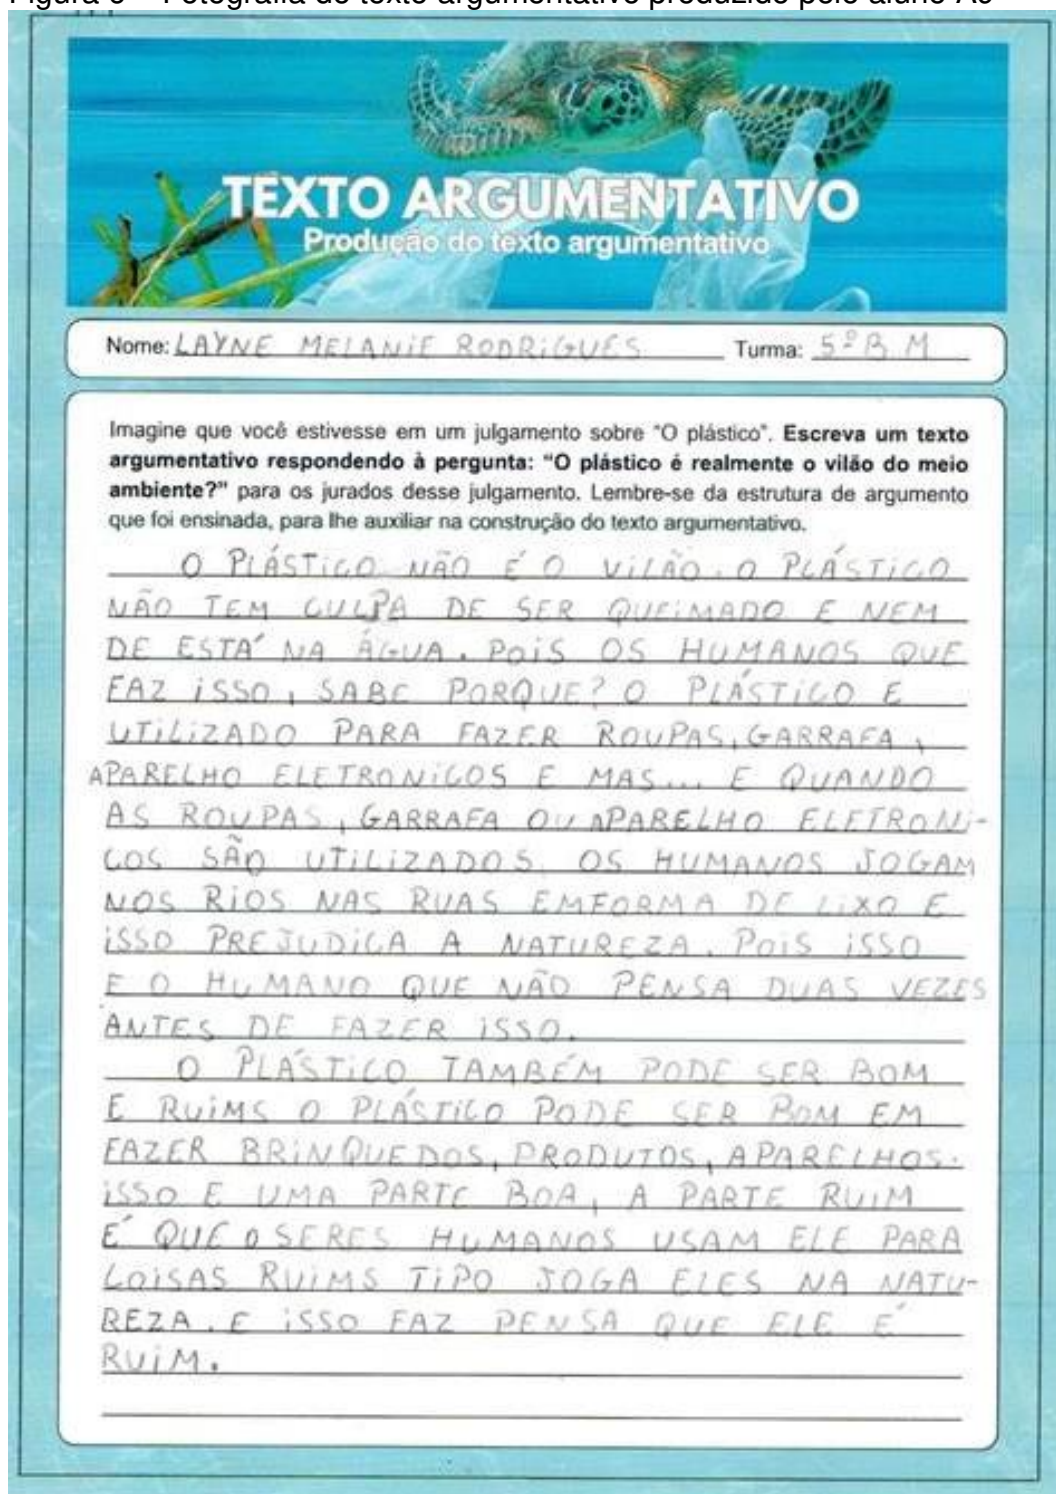 Figura 6 – Fotografia do texto argumentativo produzido pelo aluno
TEXTO ARGUMENTATIVO
Produção do texto argumentativo
Nome: LAYNE MELANIE RODRIGUES Turma: 5º B M
Imagine que você estivesse em um julgamento sobre "O plástico". Escreva um texto
argumentativo respondendo à pergunta: "O plástico é realmente o vilão do meio
ambiente?" para os jurados desse julgamento. Lembre-se da estrutura de argumento
que foi ensinada, para lhe auxiliar na construção do texto argumentativo.
O PLÁSTICO NÃO É O VILÃO. O PLÁSTICO
NÃO TEM CULPA DE SER QUEIMADO E NEM
DE ESTÁ NA ÁGUA. POIS OS HUMANOS QUE
FAZ ISSO, SABE PORQUE? O PLÁSTICO E
UTILIZADO PARA FAZER ROUPAS, GARRAFA,
APARELHO ELETRONICOS E MAS... E QUANDO
AS ROUPAS, GARRAFA OU APARELHO ELETRONI-
COS SÃO UTILIZADOS OS HUMANOS JOGAM
NOS RIOS NAS RUAS EMFORMA DE LIXO E
ISSO PREJUDICA A NATUREZA. POIS ISSO
E O HUMANO QUE NÃO PENSA DUAS VEZES
ANTES DE FAZER ISSO.
O PLÁSTICO TAMBÉM PODE SER BOM
E RUIMS O PLÁSTICO PODE SER BOM EM
FAZER BRINQUEDOS, PRODUTOS, APARELHOS.
ISSO E UMA PARTE BOA, A PARTE RUIM
É QUE O SERES HUMANOS USAM ELE PARA
COISAS RUIMS TIPO JOGA ELES NA NATU-
REZA. E ISSO FAZ PENSA QUE ELE É
RUIM.